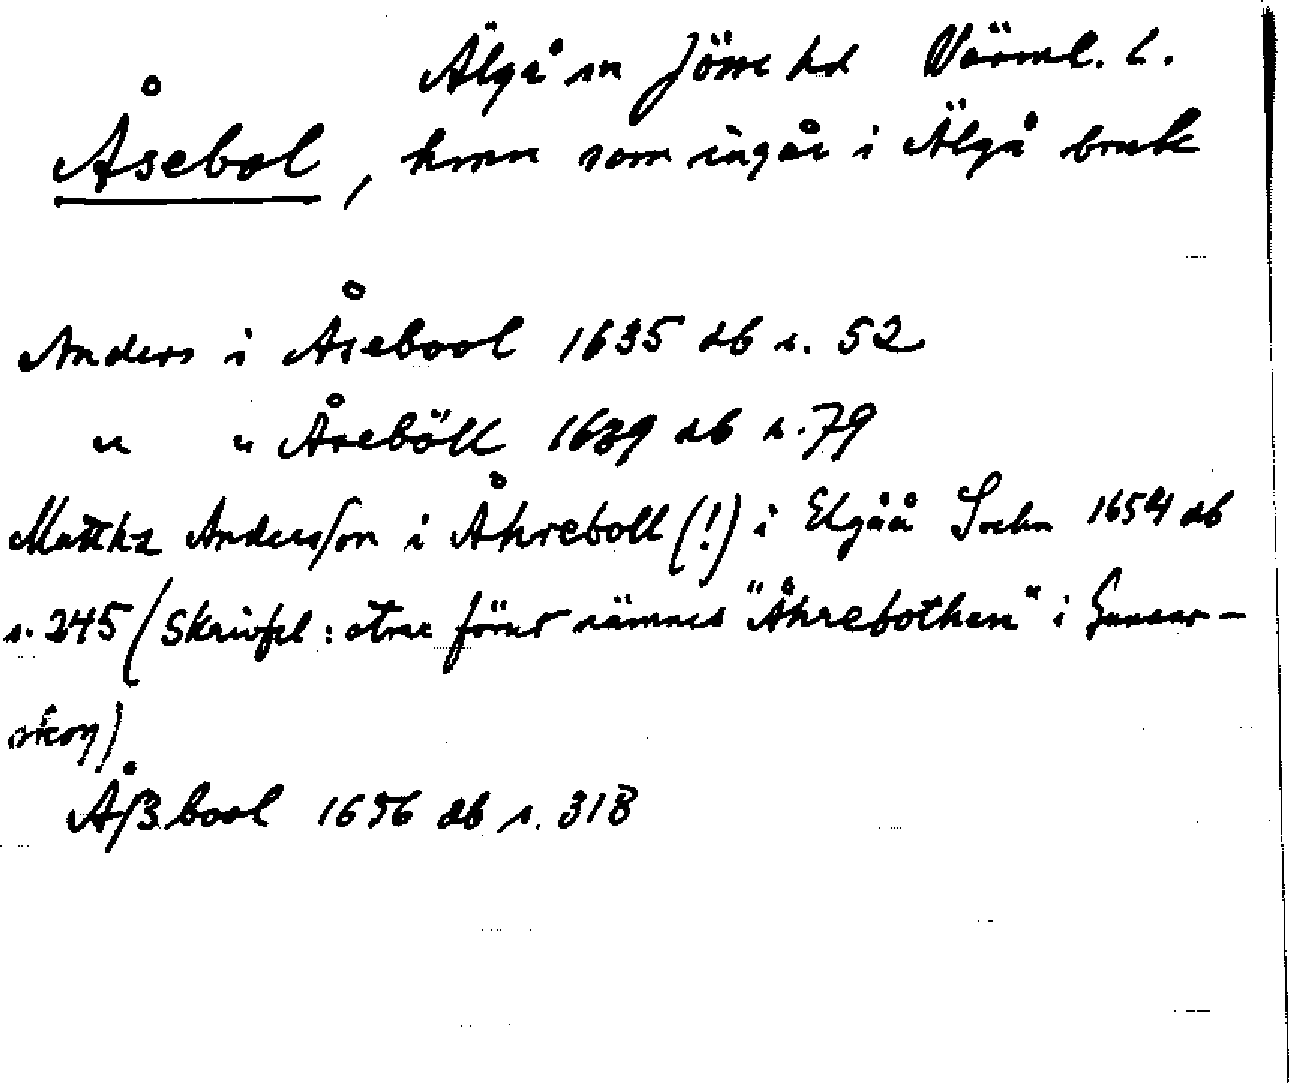 Älgå sn Jösse hd Värml. l.
Åsebol, hmn som ingår i Älgå bruk
Anders i Åsebool 1635 db s. 52
" " Åseböll 1639 db s. 79
Matthz Andersson i Åhreboll (!) i Elgåå Sochn 1654 db
s. 245 (Skrivfel: strax förut nämnes "Åhrebothen" i Gunnar-
skog)
Åßbool 1696 db s. 318